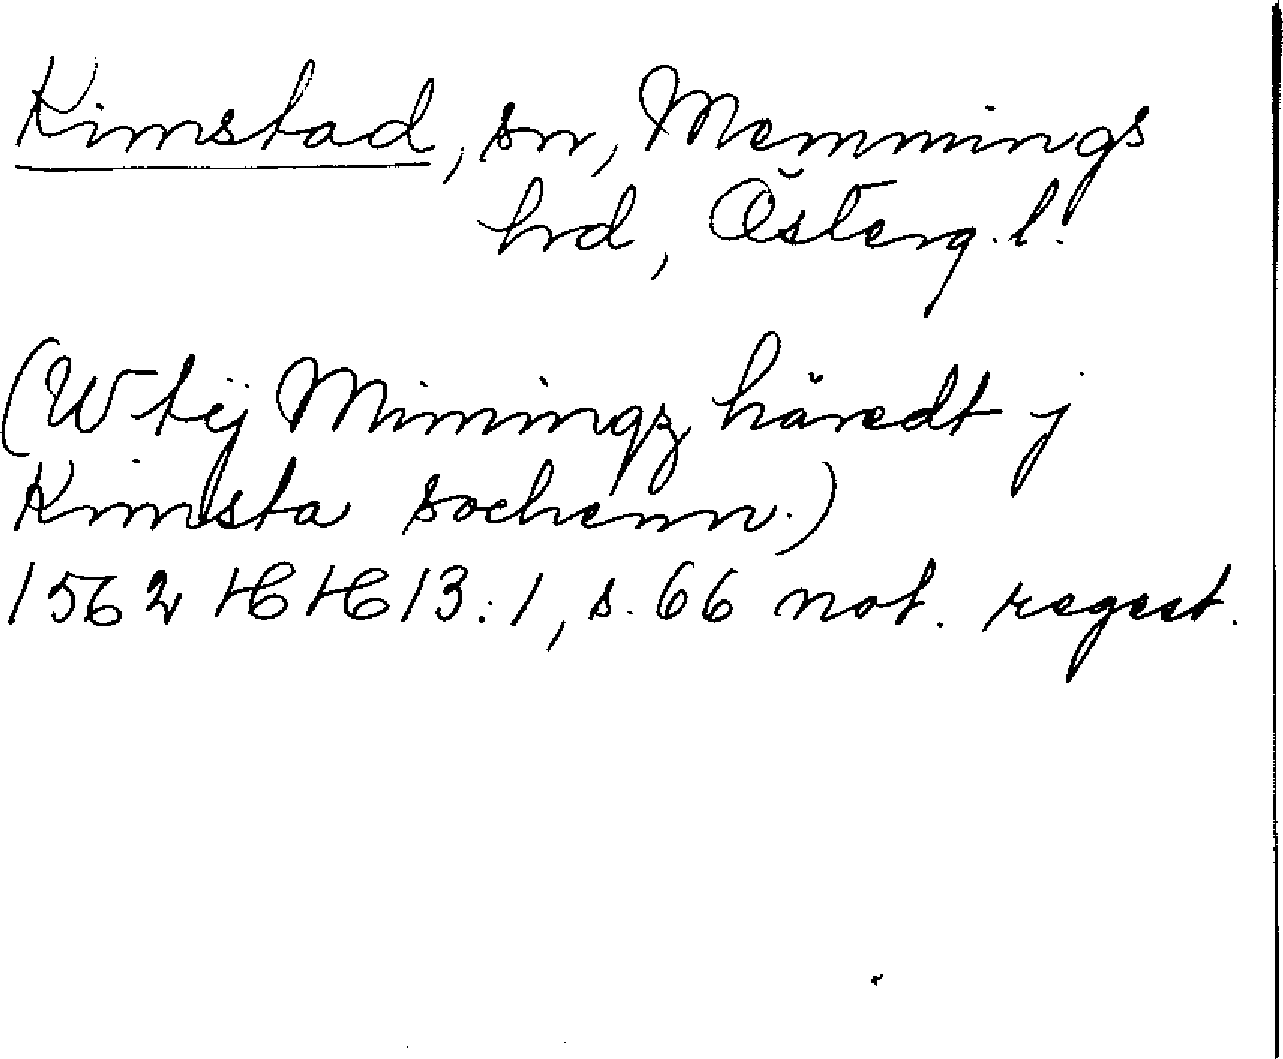 Kimstad, sn, Memmings
hrd, Österg.l.
(Wtij Miningz häredt j
Kimsta sochenn.)
1562 HH 13:1, s. 66 not. regest.